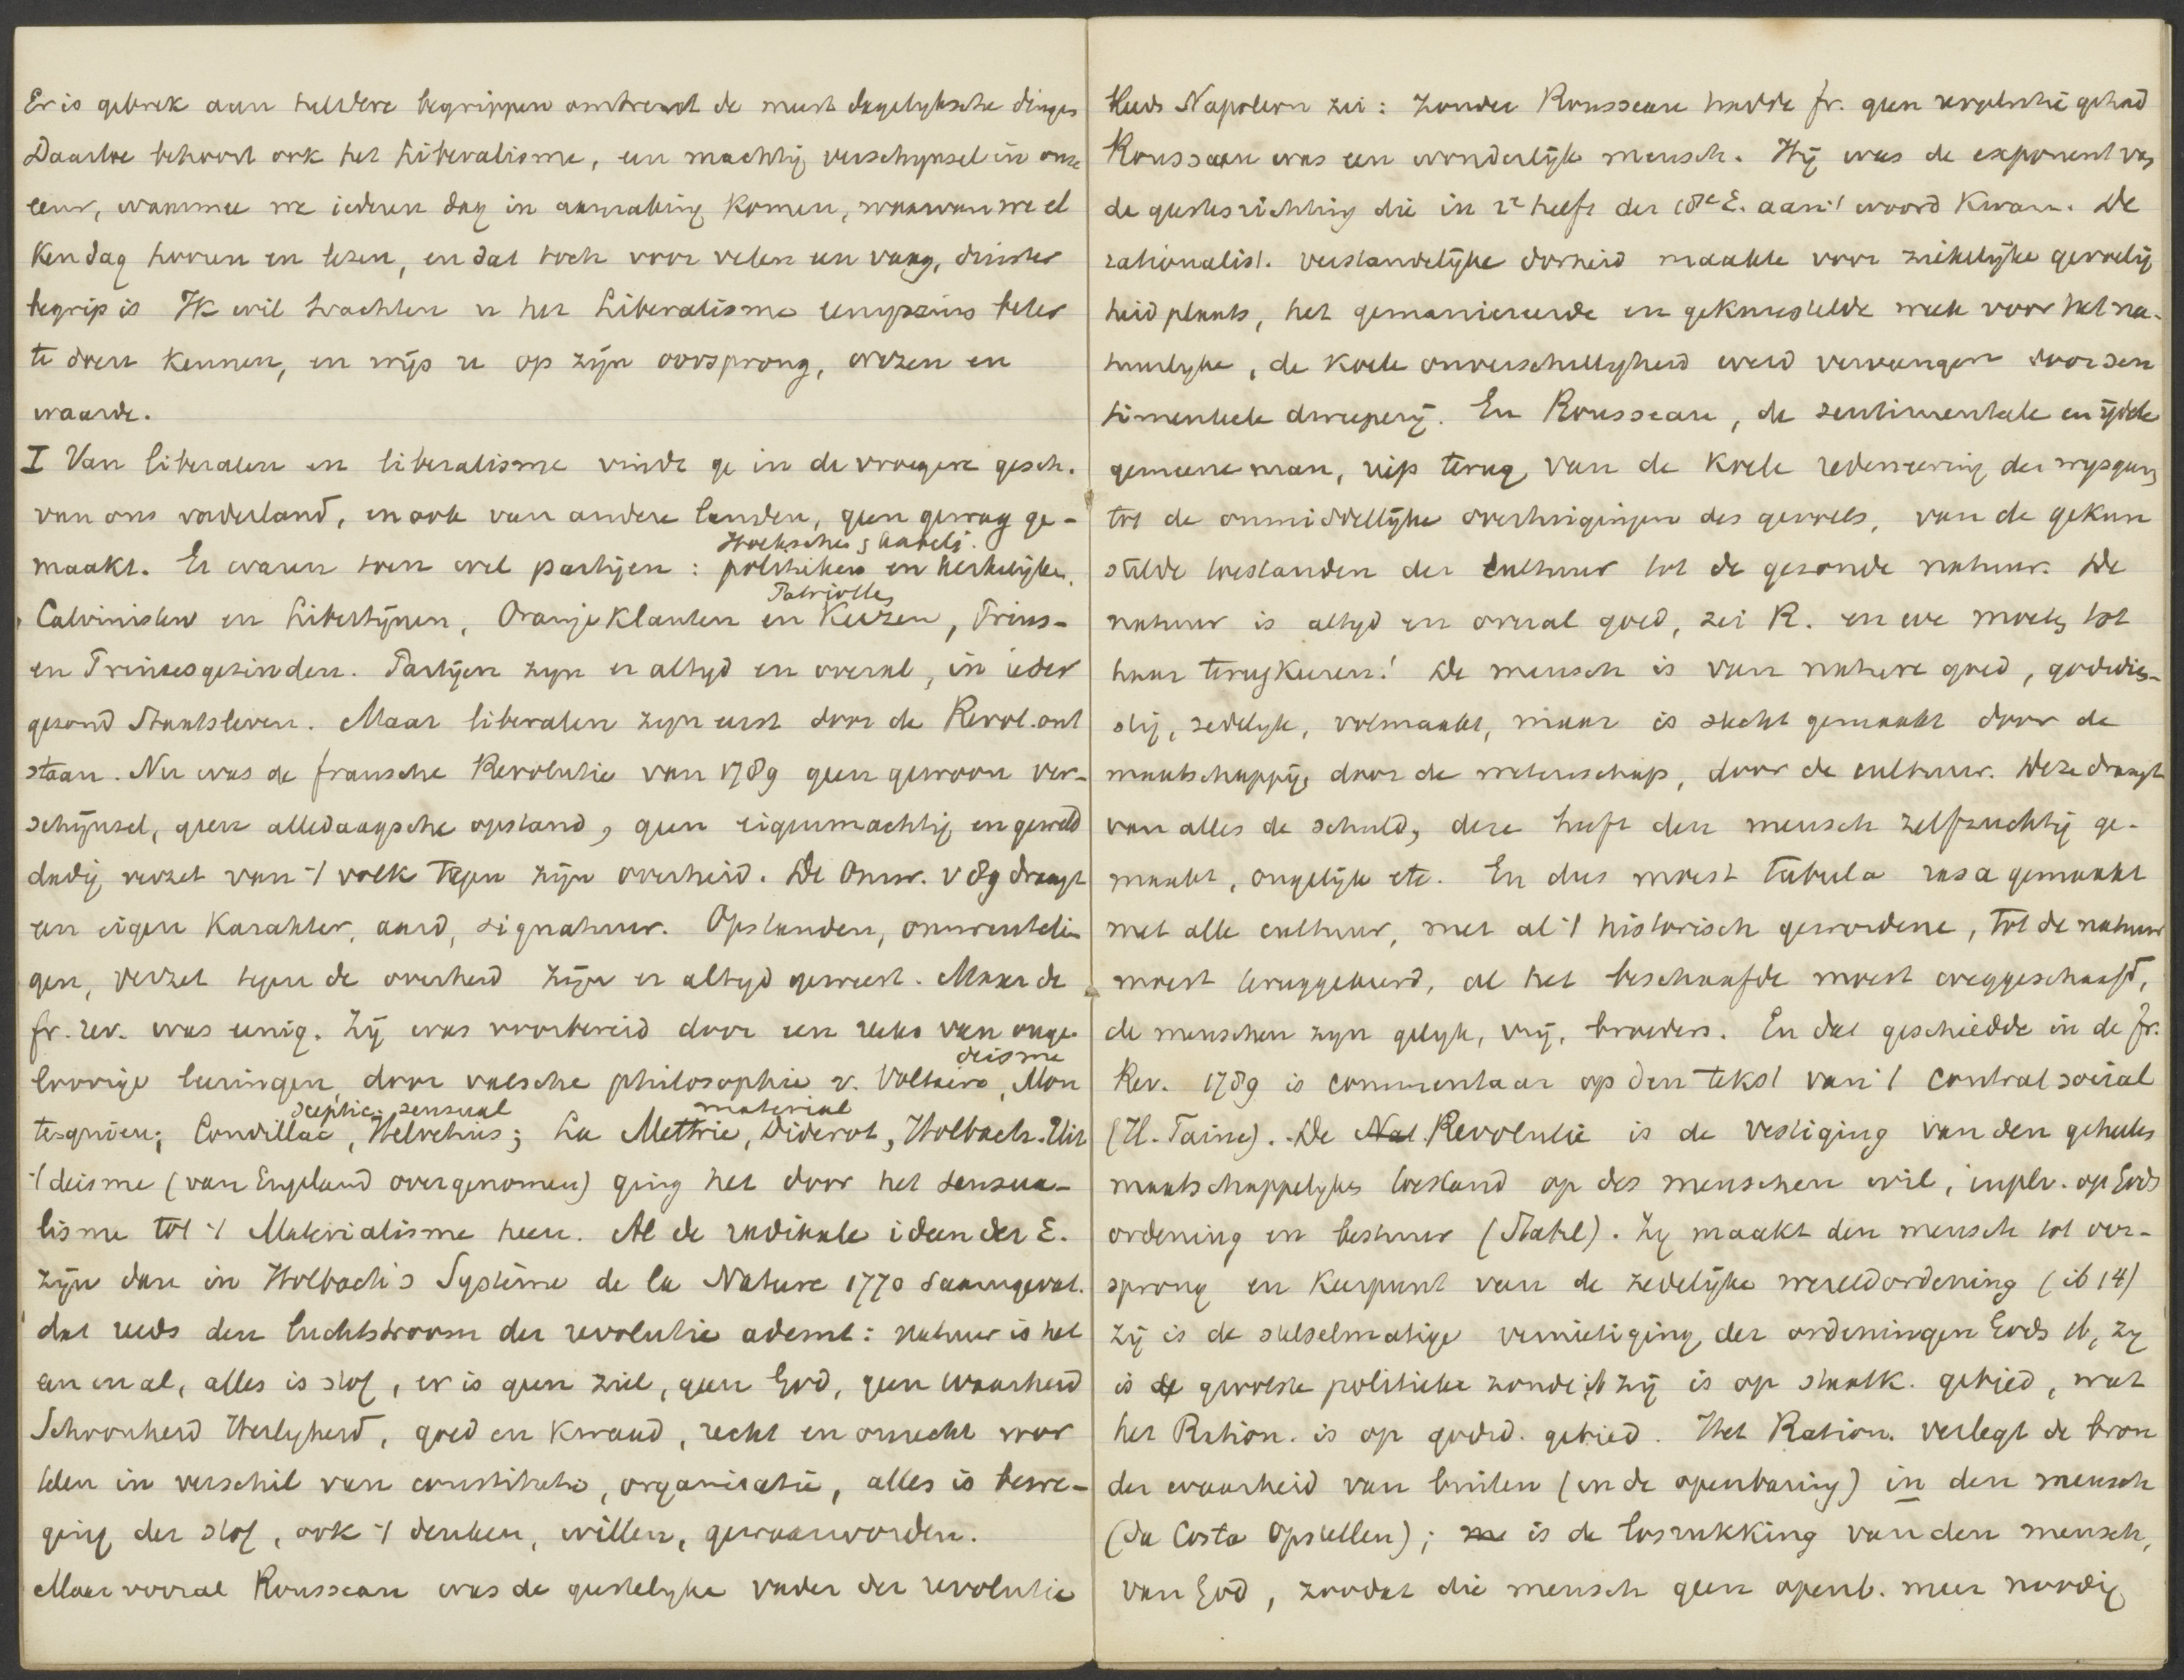 Er is gebrek aan heldere begrippen omtrent de meest dagelyksche dingen
Daartoe behoort ook het Liberalisme, een machtig verschynsel in onze
eeuw, waarmee we iederen dag in aanraking komen, waarvan we el
ken dag hooren en lezen, en dat toch voor velen een vaag, duister
begrip is Ik wil trachten u het Liberalisme eenigszins beter
te doen kennen, en wijs u op zijn oorsprong, wezen en
waarde.
I Van liberalen en liberalisme vindt ge in de vroegere gesch.
van ons vaderland, en ook van andere landen, geen gewag ge-
Hoeksche, Kabelj.
maakt. Er waren toen wel partijen: politieken en kerkelijken,
Patriotten
Calvinisten en Libertijnen, Oranjeklanten en Keezen, Prins-
en Prinsesgezinden. Partijen zyn er altyd en overal, in ieder
gezond Staatsleven. Maar liberalen zyn eerst door de Revol. ont
staan. Nu was de fransche Revolutie van 1789 geen gewoon ver-
schijnsel, geen alledaagsche opstand, geen eigenmachtig en geweld
dadig verzet van 't volk tegen zijn overheid. De Omw. v 89 draagt
een eigen karakter, aard, signatuur. Opstanden, omwentelin
gen, verzet tegen de overheid zijn er altyd geweest. Maar de
fr. rev. was eenig. Zij was voorbereid door een reeks van onge-
deisme
loovige leeringen, door valsche philosophie v. Voltaire, Mon
sceptic. sensual material
tesquieu; Condillac, Helvetius; La Mettrie, Diderot, Holbach. Uit
't deisme (van Engeland overgenomen) ging het door het sensua-
lisme tot 't Materialisme heen. Al de radikale ideen der E.
zijn dan in Holbach's Système de la Nature 1770 saamgevat.
dat reeds den luchtstroom der revolutie ademt: natuur is het
een en al, alles is stof, er is geen ziel, geen God, geen waarheid
Schoonheid Heerlykheid, goed en kwaad, recht en onrecht wor
den in verschil van constitutie, organisatie, alles is bewe-
ging der stof, ook 't denken, willen, gewaarworden.
Maar vooral Rousseau was de geestelyke vader der revolutie
Reeds Napoleon zei: zonder Rousseau hadde fr. geen revolutie gehad
Rousseau was een wonderlijk mensch. Hij was de exponent van
de geestesrichting die in 2e helft der 18e E. aan 't woord kwam. De
rationalist. verstandelijke dorheid maakte voor ziekelijke gevoelig
heid plaats, het gemanierde en gekunstelde week voor het na-
tuurlyke, de koele onverschilligheid werd vervangen door sen
timenteele dweeperij. En Rousseau, de sentimenteele en ijdele
gemeene man, riep terug van de koele redeneering der wysgeeren
tot de onmiddellijke overtuigingen des gevoels, van de gekun
stelde toestanden der cultuur tot de gezonde natuur. De
natuur is altyd en overal goed, zei R. en we moeten tot
haar terugkeeren! De mensch is van nature goed, godsdien-
stig, zedelyk, volmaakt, maar is slecht gemaakt door de
maatschappij, door de wetenschap, door de cultuur. Deze draagt
van alles de schuld, deze heeft den mensch zelfzuchtig ge-
maakt, ongelijk etc. En dus moest tabula rasa gemaakt
met alle cultuur, met al 't historisch gewordene, tot de natuur
moest teruggekeerd, al het beschaafde moest weggeschaafd,
de menschen zyn gelyk, vrij, broeders. En dat geschiedde in de fr.
Rev. 1789 is commentaar op den tekst van 't contrat social
(H. Taine). De Nat. Revolutie is de vestiging van den geheelen
maatschappelyken toestand op des menschen wil, in plv. op Gods
ordening en bestuur (Stahl). Zy maakt den mensch tot oor-
sprong en keerpunt van de zedelijke wereldordening (ib 14)
zij is de stelselmatige vernietiging der ordeningen Gods ib, zy
is de grootste politieke zonde ib zij is op staatk. gebied, wat
het Ration. is op godsd. gebied. Het Ration. verlegt de bron
der waarheid van buiten (in de openbaring) in den mensch
(da Costa Opstellen); is de losrukking van den mensch,
van God, zoodat die mensch geen openb. meer noodig